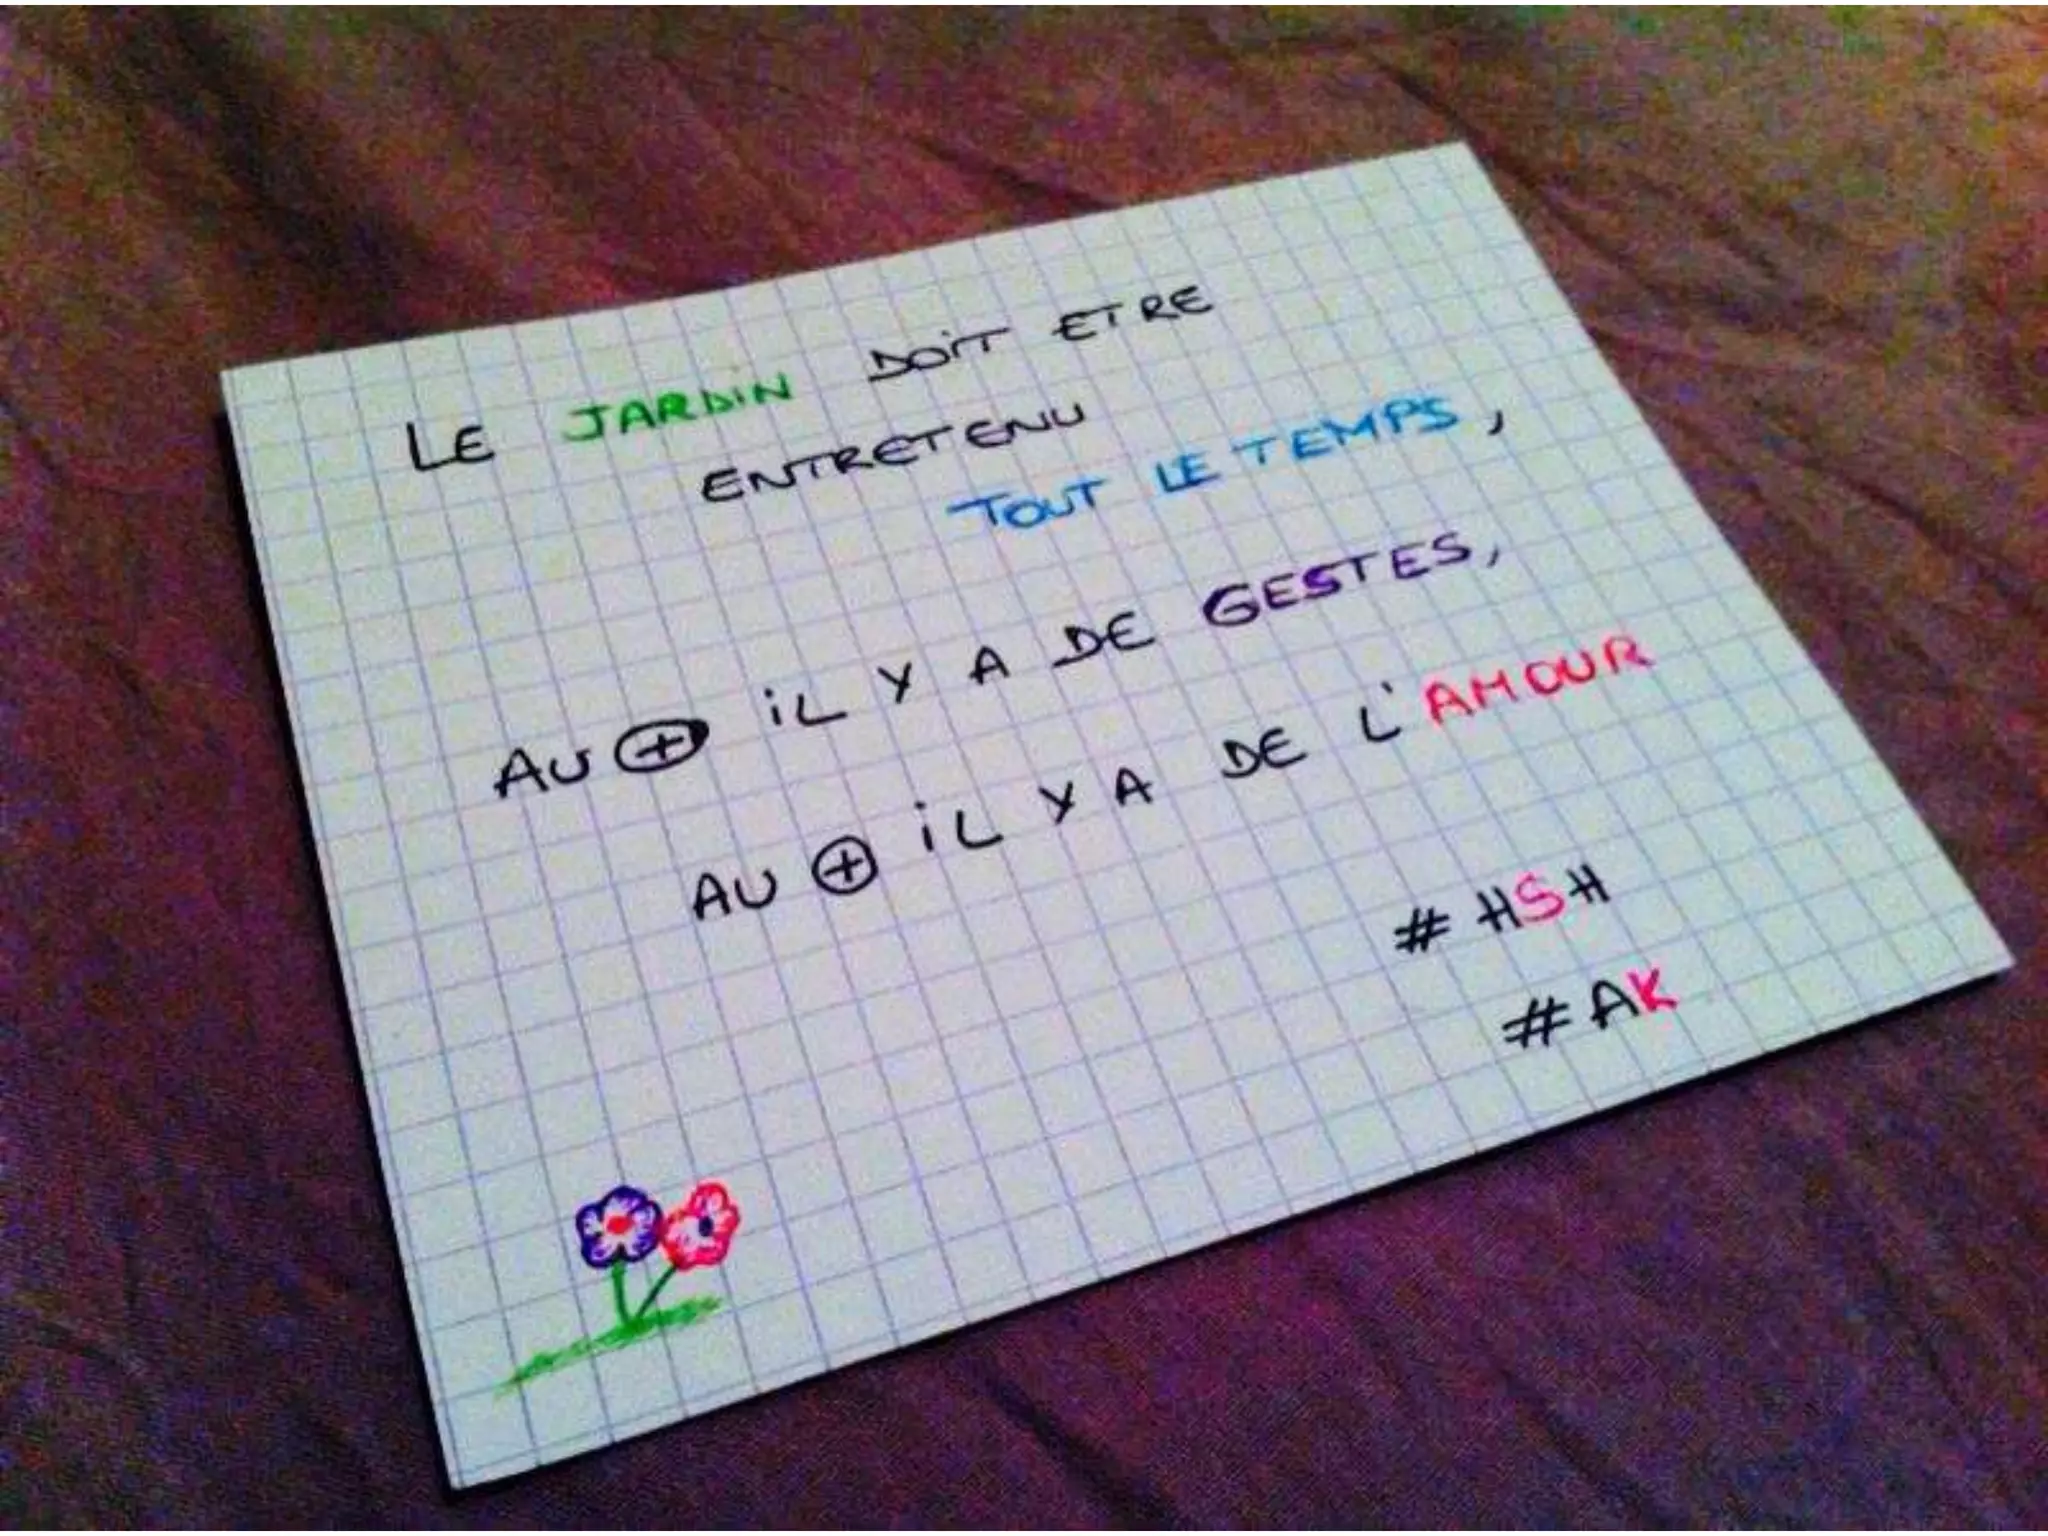 LE JARDIN DOIT ETRE
ENTRETENU
TOUT LE TEMPS,
AU ⊕ IL Y A DE GESTES,
AU ⊕ IL Y A DE L'AMOUR
# HSH
# AK